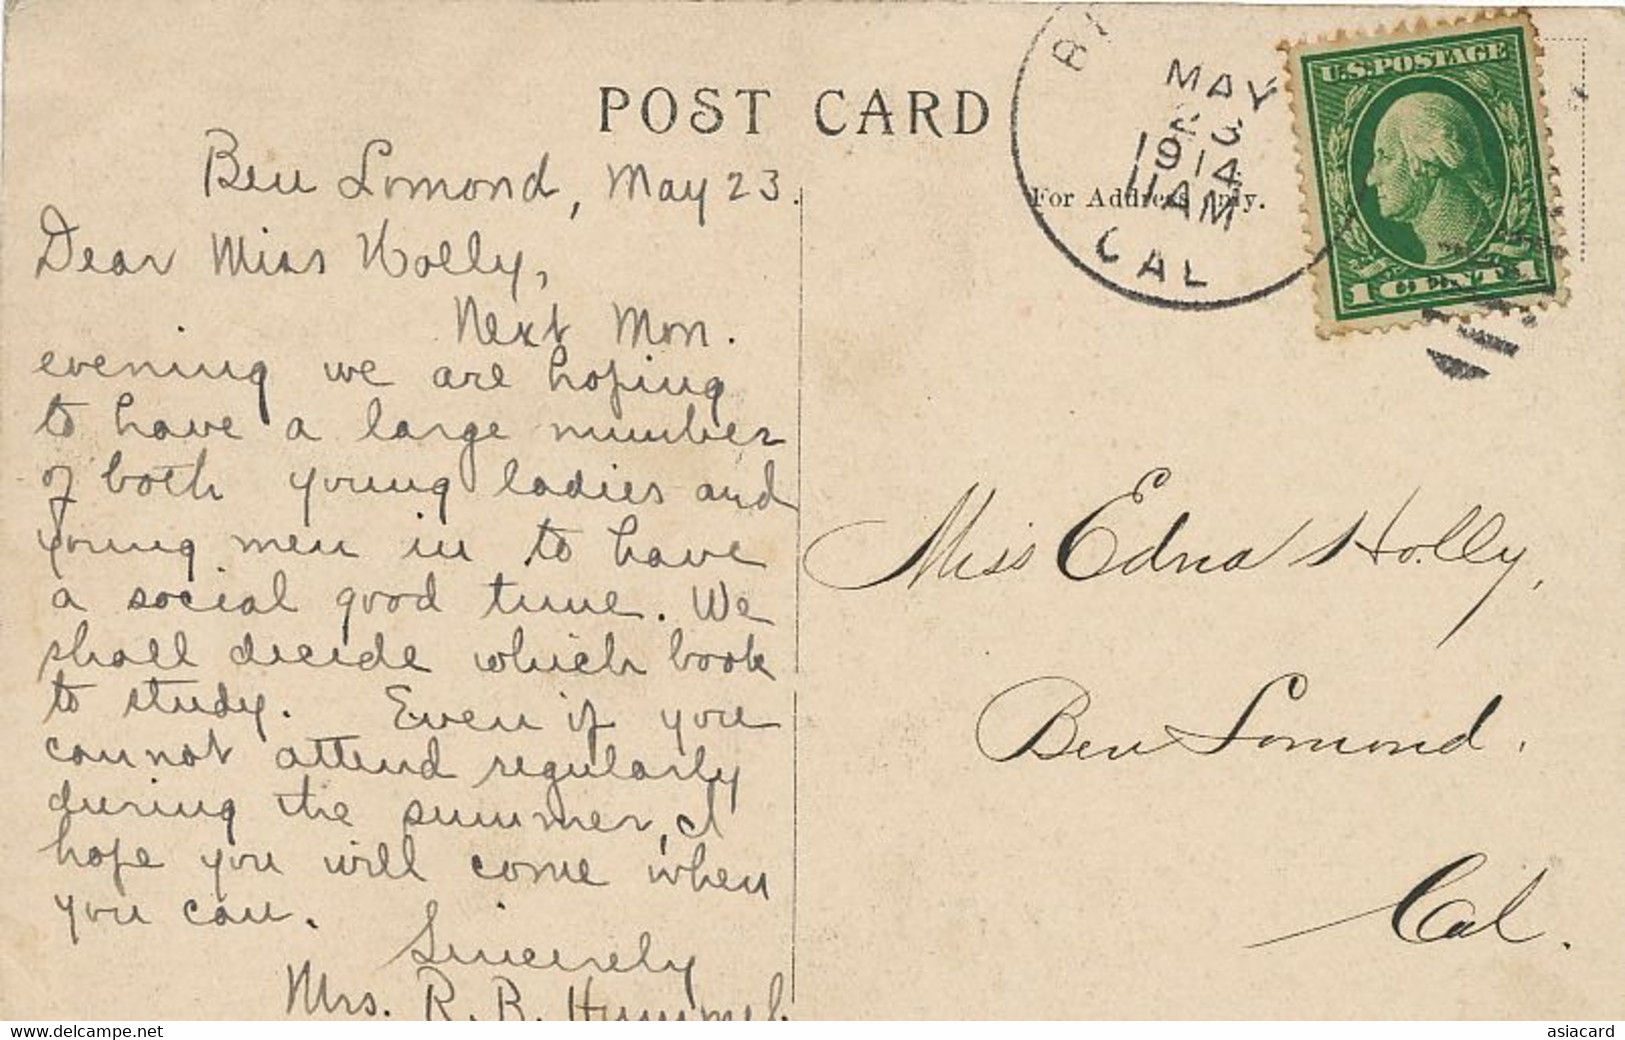 POST CARD
For Address Only.
MAY
23
1914
11 AM
CAL
U.S. POSTAGE
1 CENT 1
Ben Lomond, May 23.
Dear Miss Holly,
Next Mon.
evening we are hoping
to have a large number
of both young ladies and
young men in to have
a social good time. We
shall decide which book
to study. Even if you
cannot attend regularly
during the summer, I
hope you will come when
you can.
Sincerely
Mrs. R. B. Hummel.
Miss Edna Holly,
Ben Lomond.
Cal.
www.delcampe.net
asiacard